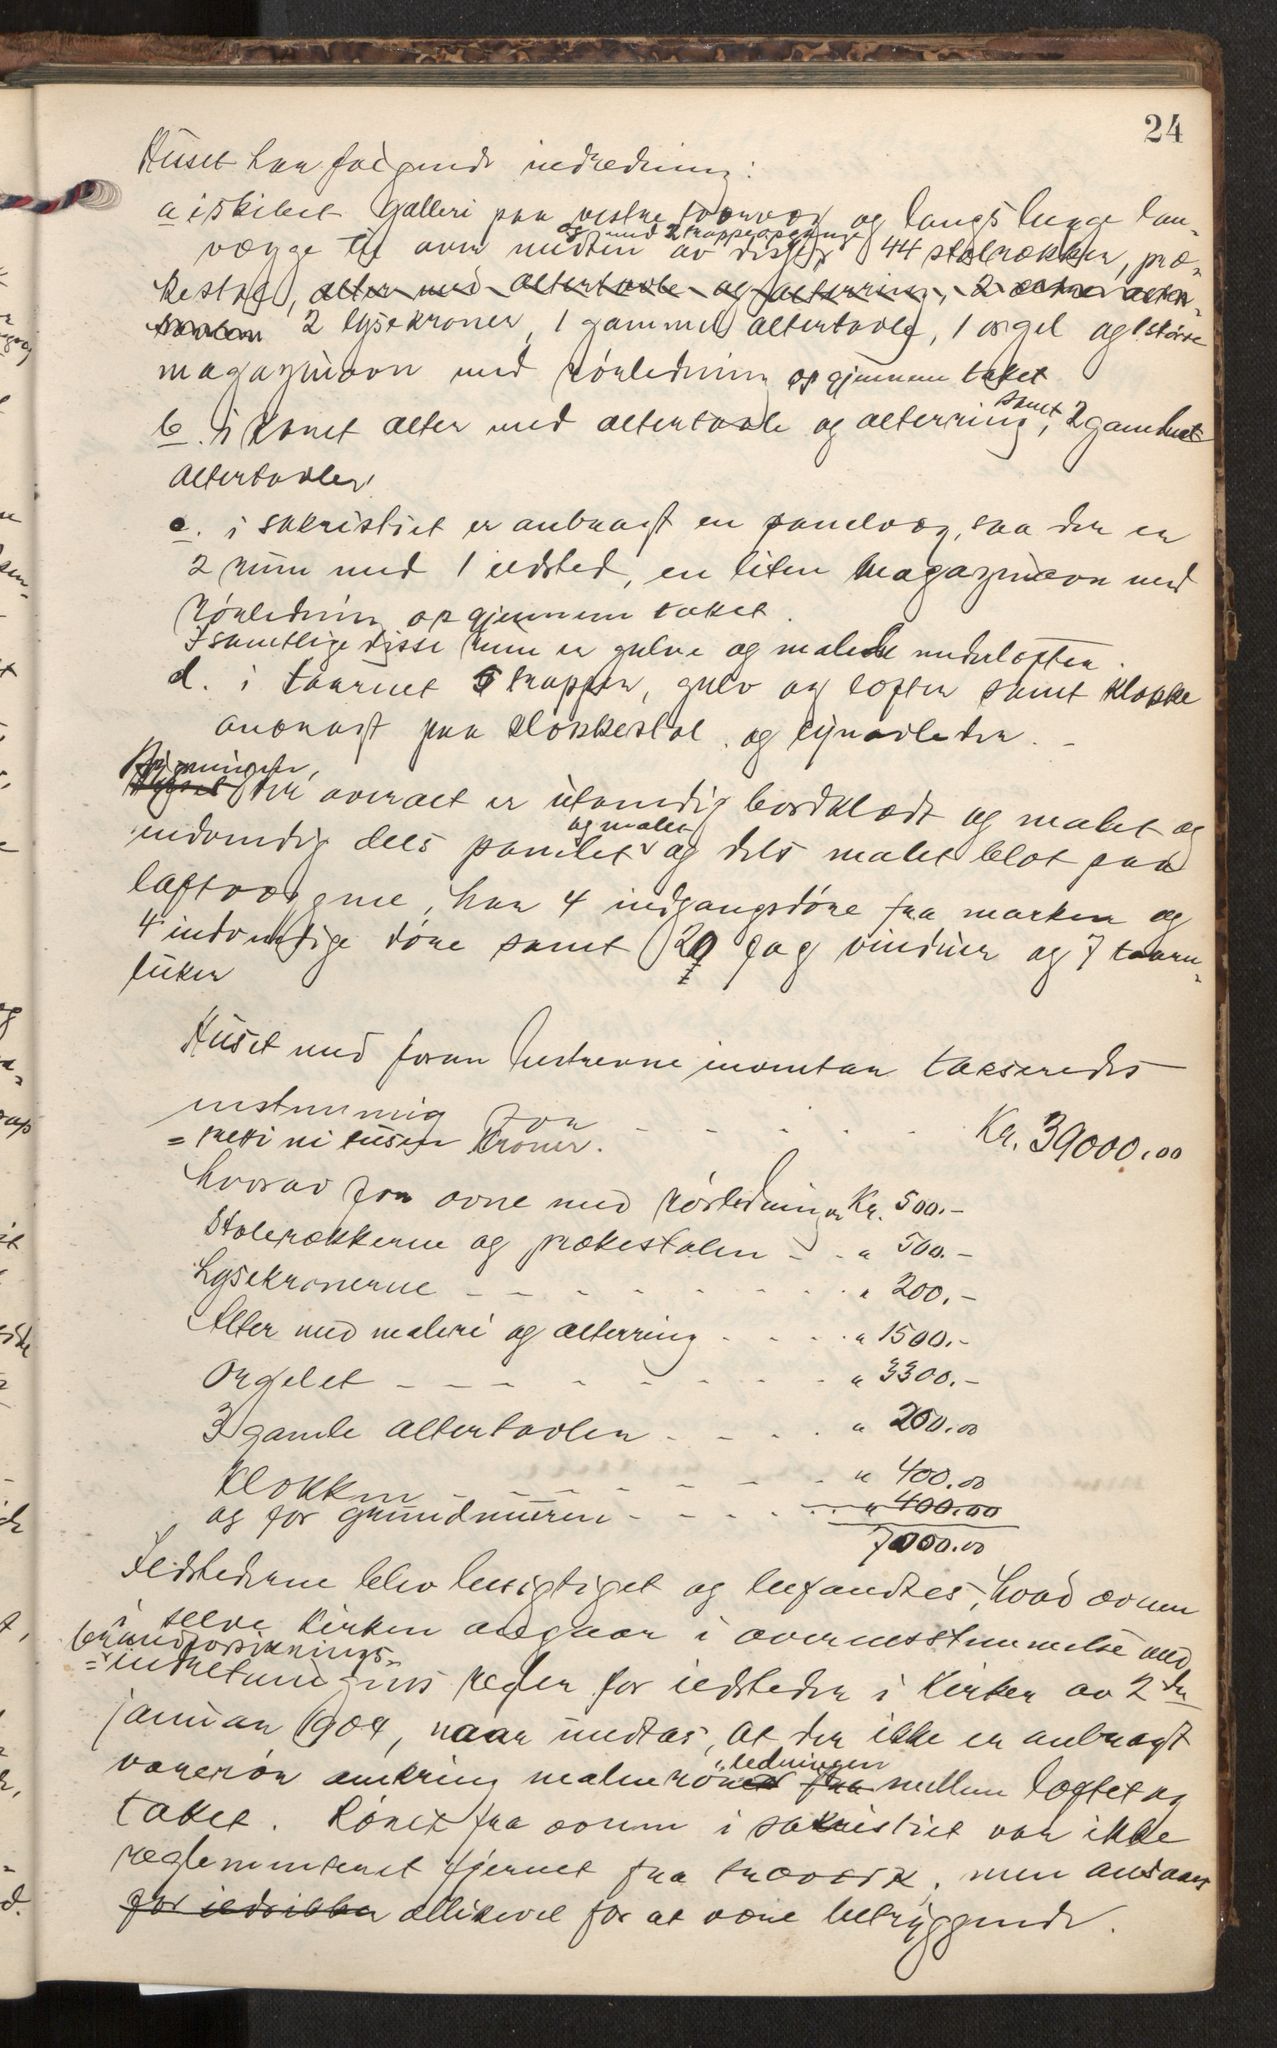 24
Huset har følgende indredning:
a i skibet galleri paa vestre tværvæg og langs begge lan-
vægge til over midten av disse og med 2 trappeopgange, 44 stolrækker, præ-
kestol, alter med altertavle og alterring, 2 alter-
2 lysekroner, 1 gammel altertavle, 1 orgel og 1 større
magazinovn med rørledning op gjennem taket
b. i koret alter med altertavle og alterring, samt 2 gamle
altertavler
c. i sakristiet er anbragt en panelvæg, saa der er
2 rum med 1 ildsted, en liten magazinovn med
rørledning op gjennem taket.
I samtlige disse rum er gulve og malede underlofter.
d. i taarnet 5 trapper, gulv og lofter samt klokke
anbragt paa klokkestol og lynavleder. -
Bygningen, Huset der overalt er utvendig bordklædt og malet og
indvendig dels panelet og malet og dels malet blot paa
laftvæggene, har 4 indgangsdøre fra marken og
4 indvendige døre samt 27 fag vinduer og 7 taarn-
luker
Huset med foran beskrevne inventar takseredes
enstemmig for - - - - - Kr. 39000.00
= tretti ni tusen kroner.
hvorav for ovne med rørledninger Kr. 500.-
Stolerækkerne og prækestolen - - " 500.-
Lysekronerne - - - - - - - - " 200.-
Alter med maleri og alterring - - - " 1500.-
Orgelet - - - - - - - - " 3300.-
3 gamle altertavler - - - - " 200.00
Klokken - - - - - - - " 400.00
og for grundmuren - - - - - " 400.00
7000.00
Ildstederne blev besigtiget og befandtes, hvad ovnen
i selve kirken angaar i overensstemmelse med
brandforsikrings-
= indretningens regler for ildsteder i kirker av 2den
januar 1904, naar undtas, at der ikke er anbragt
varerør omkring malmrørledningen fra mellem loftet og
taket. Røret fra ovnen i sakristiet var ikke
reglementeret fjernet fra træverk, men ansaaes
for ildsikker allikevel for at være betryggende.